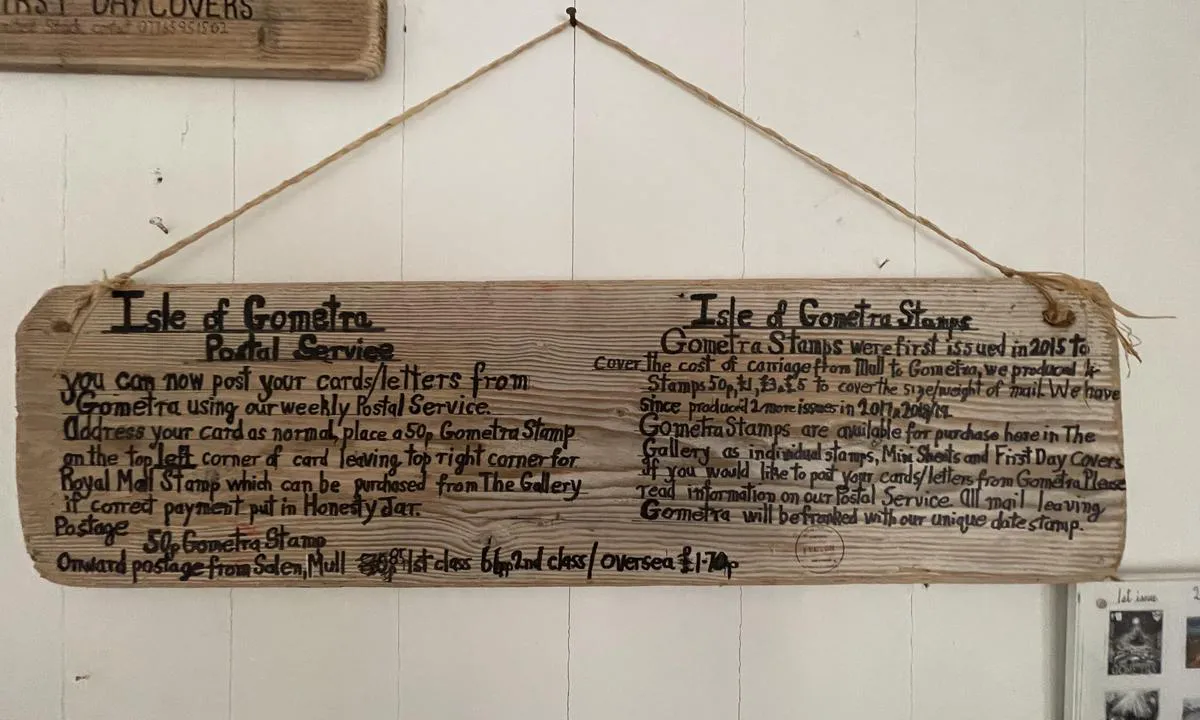 FIRST DAY COVERS
07765951562
Isle of Gometra
Postal Service
you can now post your cards/letters from
Gometra using our weekly Postal Service.
Address your card as normal, place a 50p Gometra Stamp
on the top left corner of card leaving top right corner for
Royal Mail Stamp which can be purchased from The Gallery
if correct payment put in Honesty Jar.
Postage
50p Gometra Stamp
Onward postage from Salen, Mull 1st class 61p 2nd class/oversea £1-70p
Isle of Gometra Stamps
Gometra Stamps were first issued in 2015 to
cover the cost of carriage from Mull to Gometra, we produced 4
Stamps 50p, £1, £3, £5 to cover the size/weight of mail. We have
since produced 2 more issues in 2017 2018/19.
Gometra Stamps are available for purchase here in The
Gallery as individual stamps, Mini Sheets and First Day Covers
If you would like to post your cards/letters from Gometra Please
read information on our Postal Service. All mail leaving
Gometra will be franked with our unique date stamp.
1st issue
2